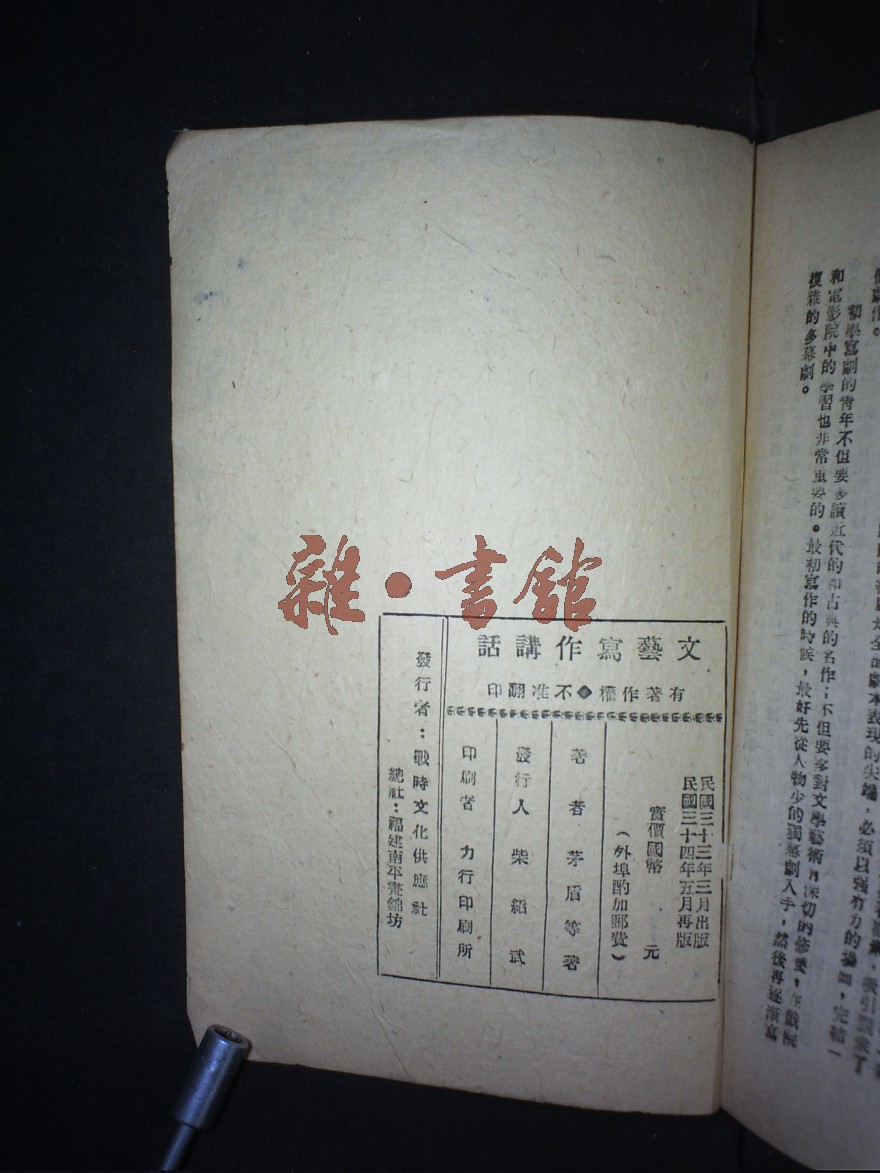 初學寫劇的青年不但要多讀近代的和古典的名作；不但要多對文學藝術有深切的修養，在戲院
和電影院中的學習也非常重要的。最初寫作的時候，最好先從人物少的獨幕劇入手，然後再逐漸寫
複雜的多幕劇。
雜·書館
文藝寫作講話
有著作權◆不准翻印
民國三十三年三月出版
民國三十四年五月再版
實價國幣 元
（外埠酌加郵費）
著者 茅盾等著
發行人 柴紹武
印刷者 力行印刷所
發行者：戰時文化供應社
總社：福建南平晝錦坊